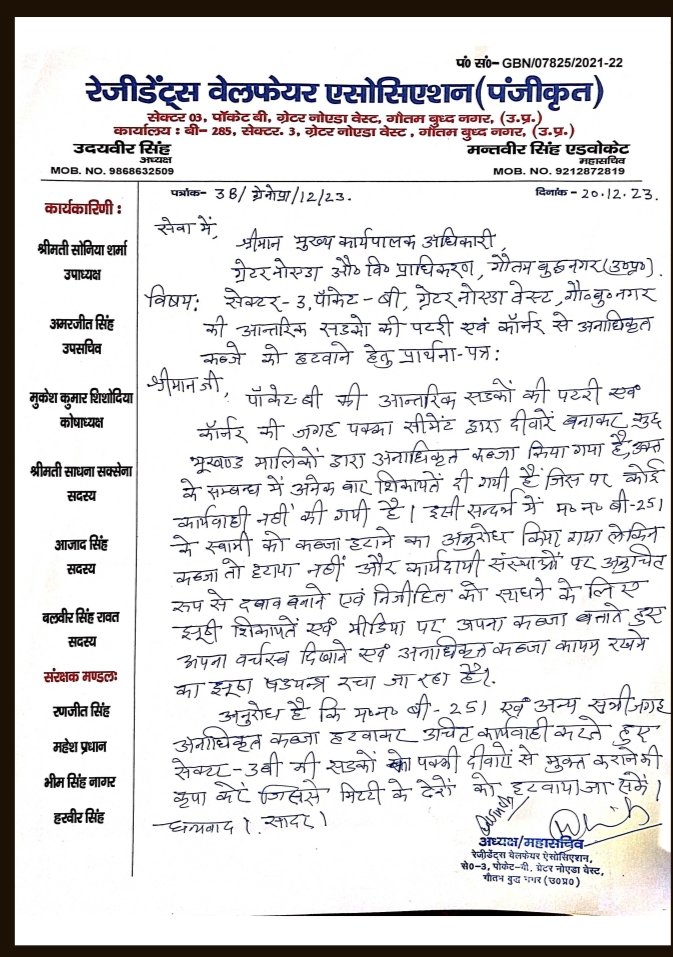 पं० सं०- GBN/07825/2021-22
रेजीडेंट्स वेलफेयर एसोसिएशन(पंजीकृत)
सेक्टर 03, पॉकेट बी, ग्रेटर नोएडा वेस्ट, गौतम बुध्द नगर, (उ.प्र.)
कार्यालय : बी- 285, सेक्टर. 3, ग्रेटर नोएडा वेस्ट , गौतम बुध्द नगर, (उ.प्र.)
उदयवीर सिंह
अध्यक्ष
MOB. NO. 9868632509
मन्तवीर सिंह एडवोकेट
महासचिव
MOB. NO. 9212872819
पत्रांक- 38/ ग्रेनोप्रा/12/23.
दिनांक - 20.12.23.
कार्यकारिणी :
श्रीमती सोनिया शर्मा
उपाध्यक्ष
अमरजीत सिंह
उपसचिव
मुकेश कुमार शिशोदिया
कोषाध्यक्ष
श्रीमती साधना सक्सेना
सदस्य
आजाद सिंह
सदस्य
बलवीर सिंह रावत
सदस्य
संरक्षक मण्डलः
रणजीत सिंह
महेश प्रधान
भीम सिंह नागर
हरवीर सिंह
सेवा में,
श्रीमान मुख्य कार्यपालक अधिकारी,
ग्रेटर नोएडा औ० वि० प्राधिकरण, गौतम बुद्ध नगर (उ०प्र०).
विषय: सेक्टर-3, पॉकेट-बी, ग्रेटर नोएडा वेस्ट, गौ०बु०नगर
की आन्तरिक सडको की पटरी एवं कॉर्नर से अनाधिकृत
कब्जे को हटवाने हेतु प्रार्थना-पत्र:
श्रीमान जी,
पॉकेट बी की आन्तरिक सडकों की पटरी एवं
कॉर्नर की जगह पक्का सीमेंट द्वारा दीवारें बनाकर कुछ
भूखण्ड मालिकों द्वारा अनाधिकृत कब्जा किया गया है, उक्त
के सम्बन्ध में अनेक बार शिकायतें दी गयी हैं जिस पर कोई
कार्यवाही नहीं की गयी है। इसी सन्दर्भ में म० न० बी-251
के स्वामी को कब्जा हटाने का अनुरोध किया गया लेकिन
कब्जा तो हटाया नहीं और कार्यदायी संस्थाओं पर अनुचित
रूप से दबाव बनाने एवं निजीहित को साधने के लिए
झूठी शिकायतें एवं मीडिया पर अपना कब्जा बताते हुए
अपना वर्चस्व दिखाने एवं अनाधिकृत कब्जा कायम रखने
का झूठा षडयन्त्र रचा जा रहा है।
अनुरोध है कि म०न० बी-251 एवं अन्य सभी जगह
अनाधिकृत कब्जा हटवाकर उचित कार्यवाही करते हुए
सेक्टर-3बी की सडकों को पक्की दीवारों से मुक्त कराने की
कृपा करें जिससे मिट्टी के ढेरों को हटवाया जा सकें।
धन्यवाद। सादर।
अध्यक्ष/महासचिव
रेजीडेंट्स वेलफेयर ऐसोसिएशन,
से०-3, पोकेट-बी, ग्रेटर नोएडा वेस्ट,
गौतम बुद्ध नगर (उ०प्र०)